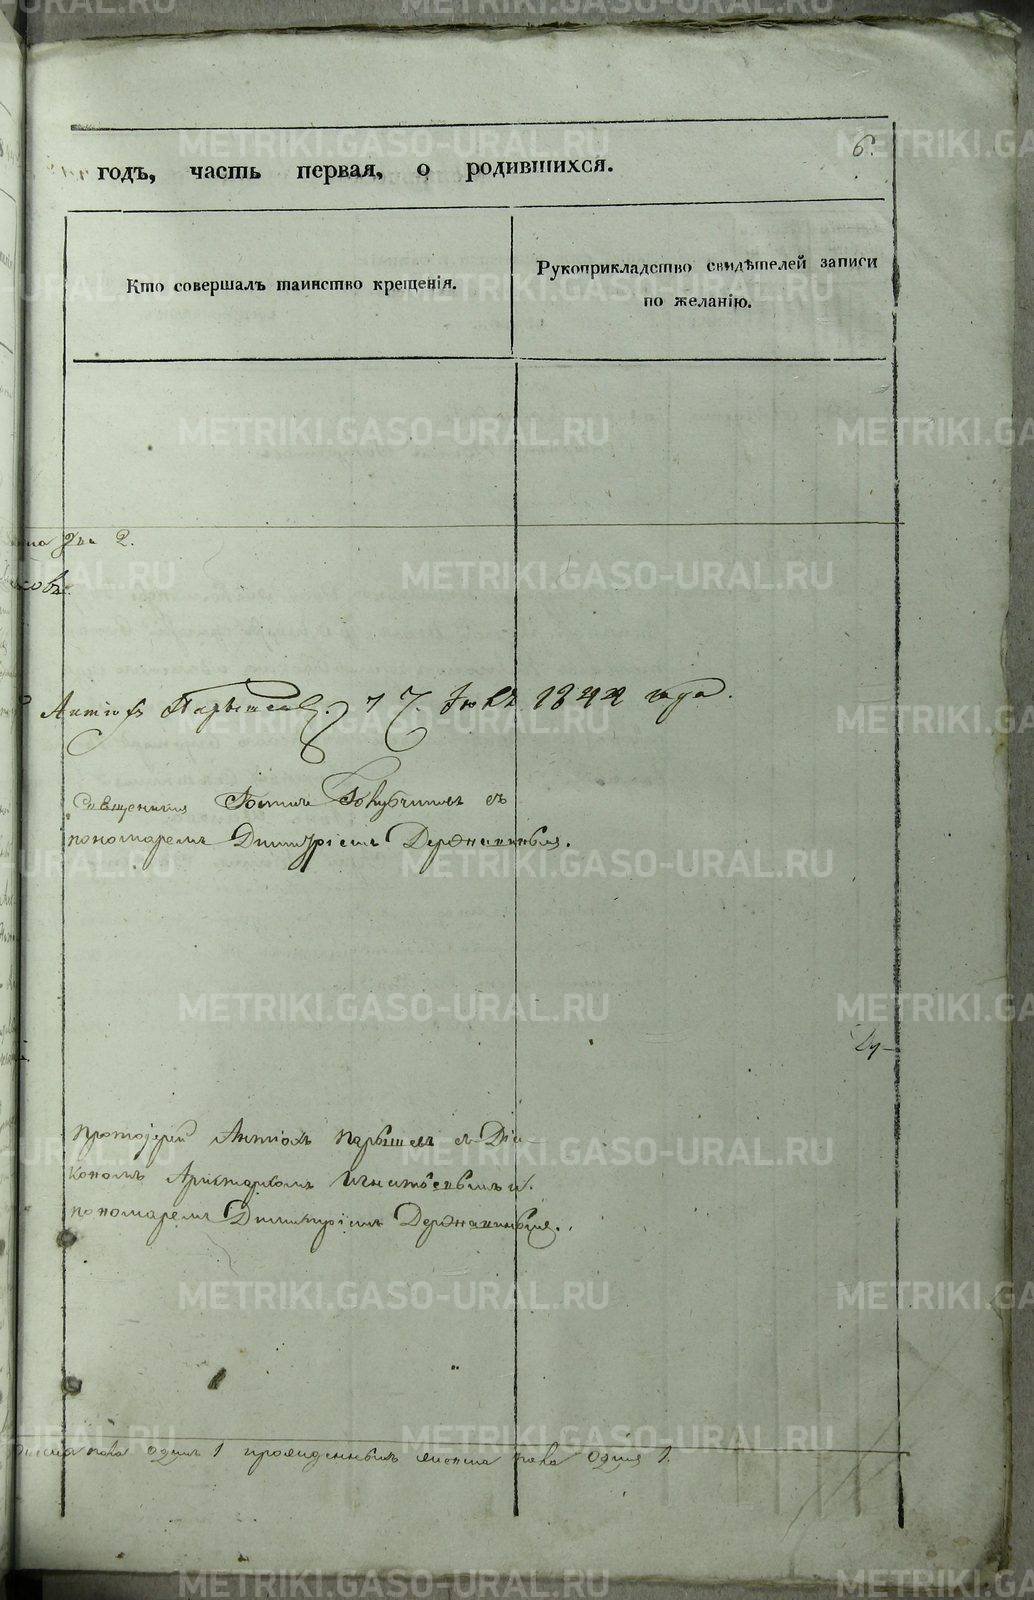 6.
годъ, часть первая, о родившихся.
Кто совершалъ таинство крещенія.
Рукоприкладство свидѣтелей записи
по желанію.
два 2.
Антіохъ Парышевъ. 17. Іюля 1844 года.
Священникъ Голубчиковъ съ
пономаремъ Димитріемъ Державинымъ.
Ду-
Протоіерей Антіохъ Парышевъ съ Діа-
кономъ Аристархомъ Игнатьевымъ и
пономаремъ Димитріемъ Державинымъ.
пола одинъ 1 женска пола одна 1.
METRIKI.GASO-URAL.RU